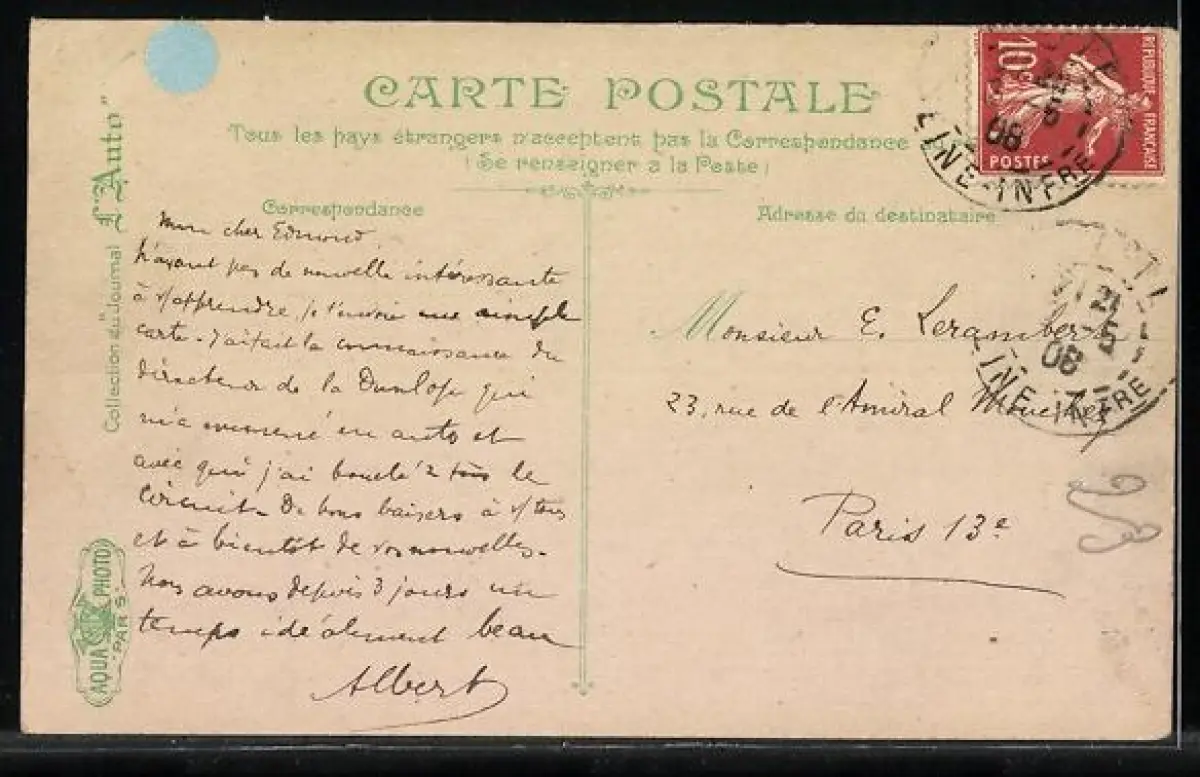 CARTE POSTALE
Tous les pays étrangers n'acceptent pas la Correspondance
(Se renseigner a la Poste)
Correspondance
Adresse du destinataire
Collection du Journal "L'Auto"
AQUA PHOTO
PARIS
10c
RÉPUBLIQUE FRANÇAISE
POSTES
5
08
INE-INFRE
21
5
08
INE-INFRE
Mon cher Edmond,
N'ayant pas de nouvelle intéressante
à v/ apprendre, je t'envoie une simple
carte. J'ai fait la connaissance du
directeur de la Dunlop qui
m'a emmené en auto et
avec qui j'ai bouclé 2 fois le
circuit. De bons baisers à v/ tous
et à bientôt de vos nouvelles.
Nous avons depuis 3 jours un
temps idéalement beau
Albert
Monsieur E. Lerambert
23, rue de l'Amiral Mouchez
Paris 13e